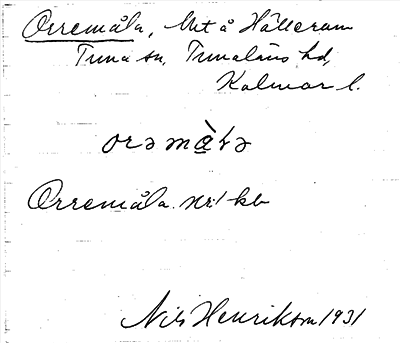 Orremåla, Ut å Hälleram
Tuna sn, Tunaläns hd,
Kalmar l.
orəmàlə
Orremåla. Nr 1 kb
Nils Henrikson 1931